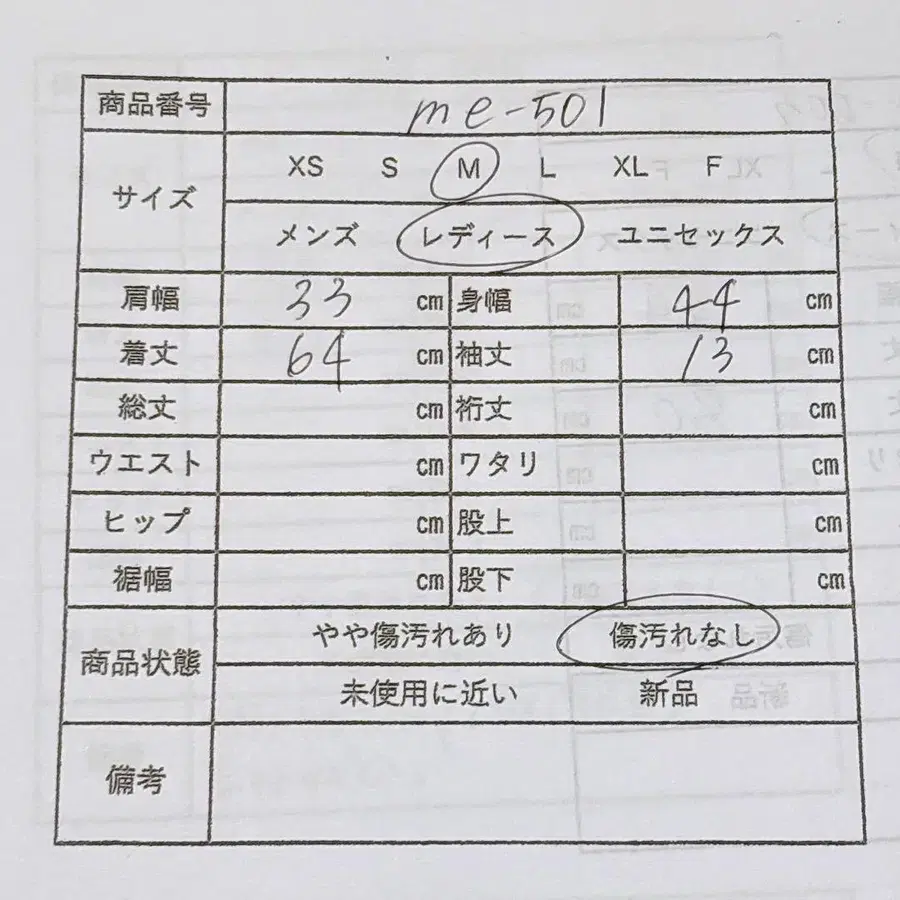 商品番号 me-501
サイズ XS S M L XL F
メンズ レディース ユニセックス
肩幅 33 cm 身幅 44 cm
着丈 64 cm 袖丈 13 cm
総丈 cm 裄丈 cm
ウエスト cm ワタリ cm
ヒップ cm 股上 cm
裾幅 cm 股下 cm
商品状態 やや傷汚れあり 傷汚れなし
未使用に近い 新品
備考